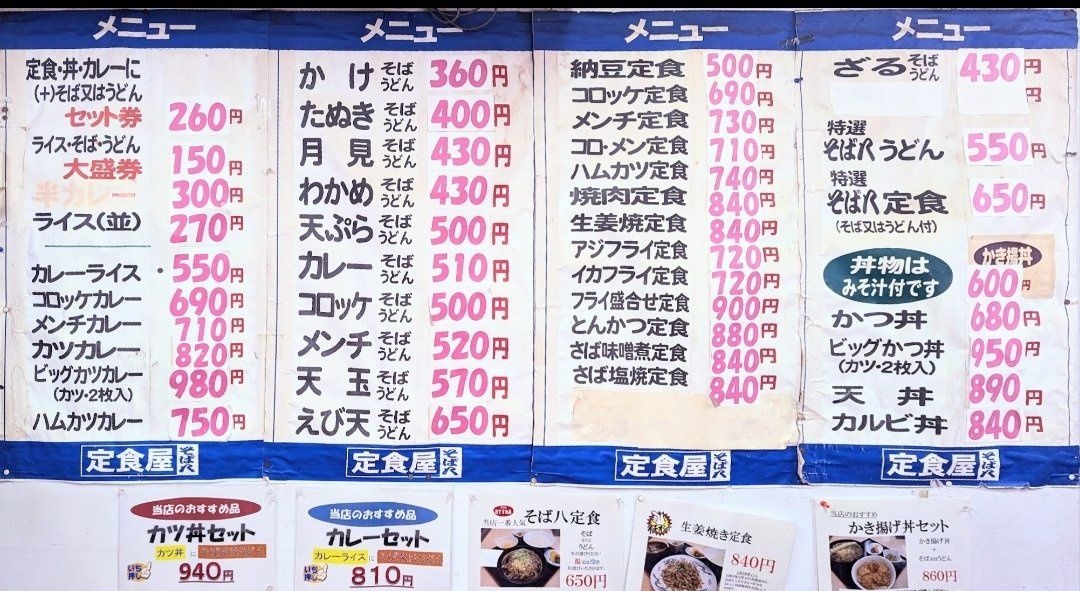 メニュー
定食・丼・カレーに
(+)そば又はうどん
セット券 260円
ライス・そば・うどん
大盛券 150円
半カレー 300円
ライス(並) 270円
カレーライス 550円
コロッケカレー 690円
メンチカレー 710円
カツカレー 820円
ビッグカツカレー 980円
(カツ・2枚入)
ハムカツカレー 750円
定食屋 そば八
メニュー
かけ そば うどん 360円
たぬき そば うどん 400円
月見 そば うどん 430円
わかめ そば うどん 430円
天ぷら そば うどん 500円
カレー そば うどん 510円
コロッケ そば うどん 500円
メンチ そば うどん 520円
天玉 そば うどん 570円
えび天 そば うどん 650円
定食屋 そば八
メニュー
納豆定食 500円
コロッケ定食 690円
メンチ定食 730円
コロ・メン定食 710円
ハムカツ定食 740円
焼肉定食 840円
生姜焼定食 840円
アジフライ定食 720円
イカフライ定食 720円
フライ盛合せ定食 900円
とんかつ定食 880円
さば味噌煮定食 840円
さば塩焼定食 840円
定食屋 そば八
メニュー
ざる そば うどん 430円
円
特選
そば八うどん 550円
特選
そば八定食 650円
(そば又はうどん付)
丼物は
みそ汁付です
かき揚丼
600円
かつ丼 680円
ビッグかつ丼 950円
(カツ・2枚入)
天丼 890円
カルビ丼 840円
定食屋 そば八
当店のおすすめ品
カツ丼セット
カツ丼 に
いち押し
940円
当店のおすすめ品
カレーセット
カレーライス に
いち押し
810円
当店一番人気 そば八定食
そば
または
うどん
をお選びください
650円
生姜焼き定食
840円
当店のおすすめ
かき揚げ丼セット
かき揚げ丼
+
そば又はうどん
860円